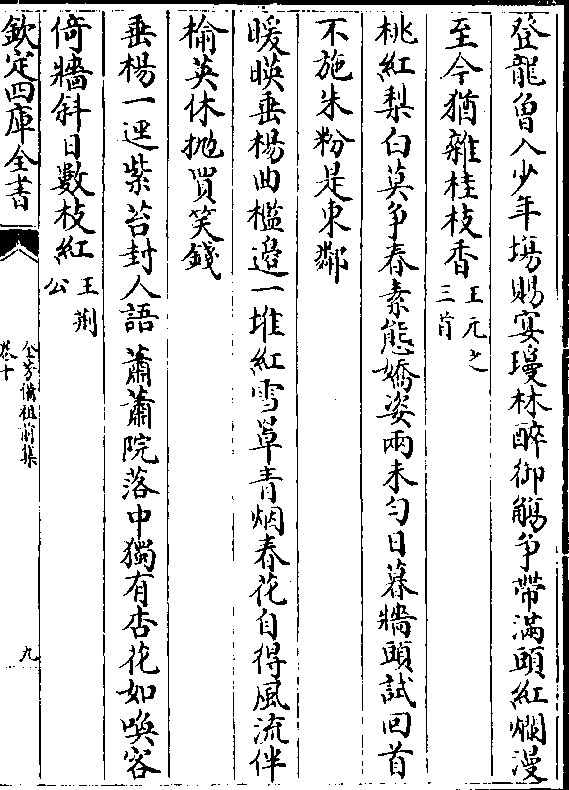 登龍曾入少年場賜宴瓊林醉御觴争帶滿頭紅爛漫
至今猶雜桂枝香王元之三首
桃紅梨白莫争春素態嬌姿兩未匀日暮牆頭試回首
不施朱粉是東鄰
暖暎垂楊曲檻邉一堆紅雪罩青烟春花自得風流伴
榆英休抛買笑錢
垂楊一逕紫苔封人語蕭蕭院落中獨有杏花如喚客
倚牆斜日數枝紅王荆公
欽定四庫全書
全芳備祖前集
卷十
九